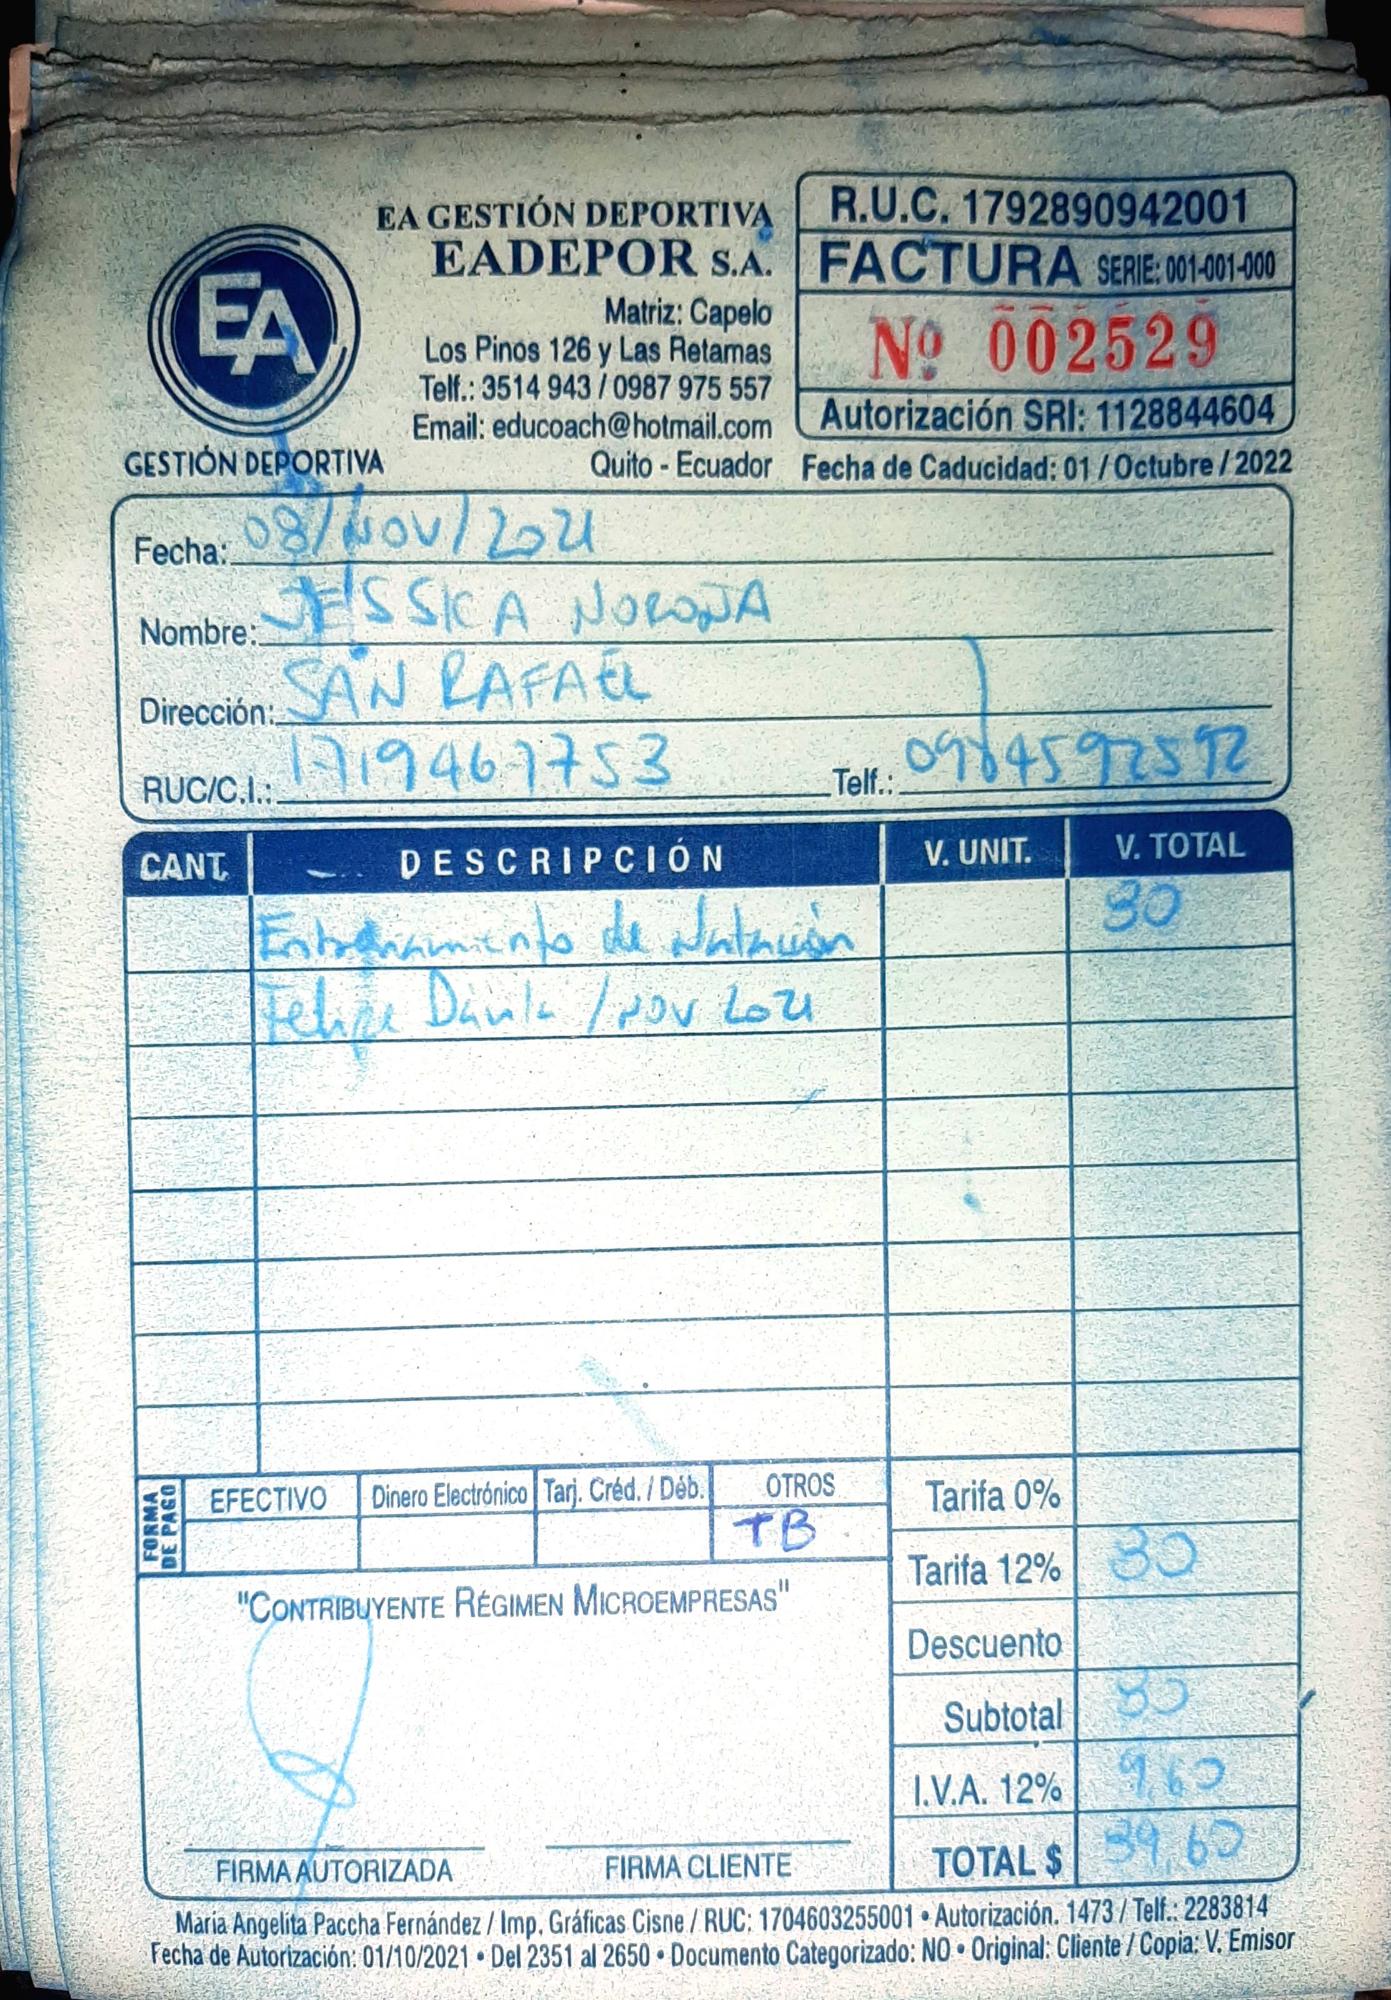 EA GESTIÓN DEPORTIVA
EADEPOR S.A.
Matriz: Capelo
Los Pinos 126 y Las Retamas
Telf.: 3514 943 / 0987 975 557
Email: educoach@hotmail.com
Quito - Ecuador
EA
GESTIÓN DEPORTIVA
R.U.C. 1792890942001
FACTURA SERIE: 001-001-000
Nº 002529
Autorización SRI: 1128844604
Fecha de Caducidad: 01 / Octubre / 2022
Fecha: 08/NOV/2021
Nombre: JESSICA
Dirección: SAN RAFAEL
RUC/C.I.: 1719467753 Telf.:
CANT. DESCRIPCIÓN V. UNIT. V. TOTAL
Entrenamiento de Natación 30
Felipe Dávila / NOV 2021
FORMA DE PAGO
EFECTIVO Dinero Electrónico Tarj. Créd. / Déb. OTROS
TB
Tarifa 0%
Tarifa 12% 30
Descuento
Subtotal 30
I.V.A. 12% 9,60
TOTAL $ 39,60
"CONTRIBUYENTE RÉGIMEN MICROEMPRESAS"
FIRMA AUTORIZADA FIRMA CLIENTE
Maria Angelita Paccha Fernández / Imp. Gráficas Cisne / RUC: 1704603255001 • Autorización. 1473 / Telf.: 2283814
Fecha de Autorización: 01/10/2021 • Del 2351 al 2650 • Documento Categorizado: NO • Original: Cliente / Copia: V. Emisor